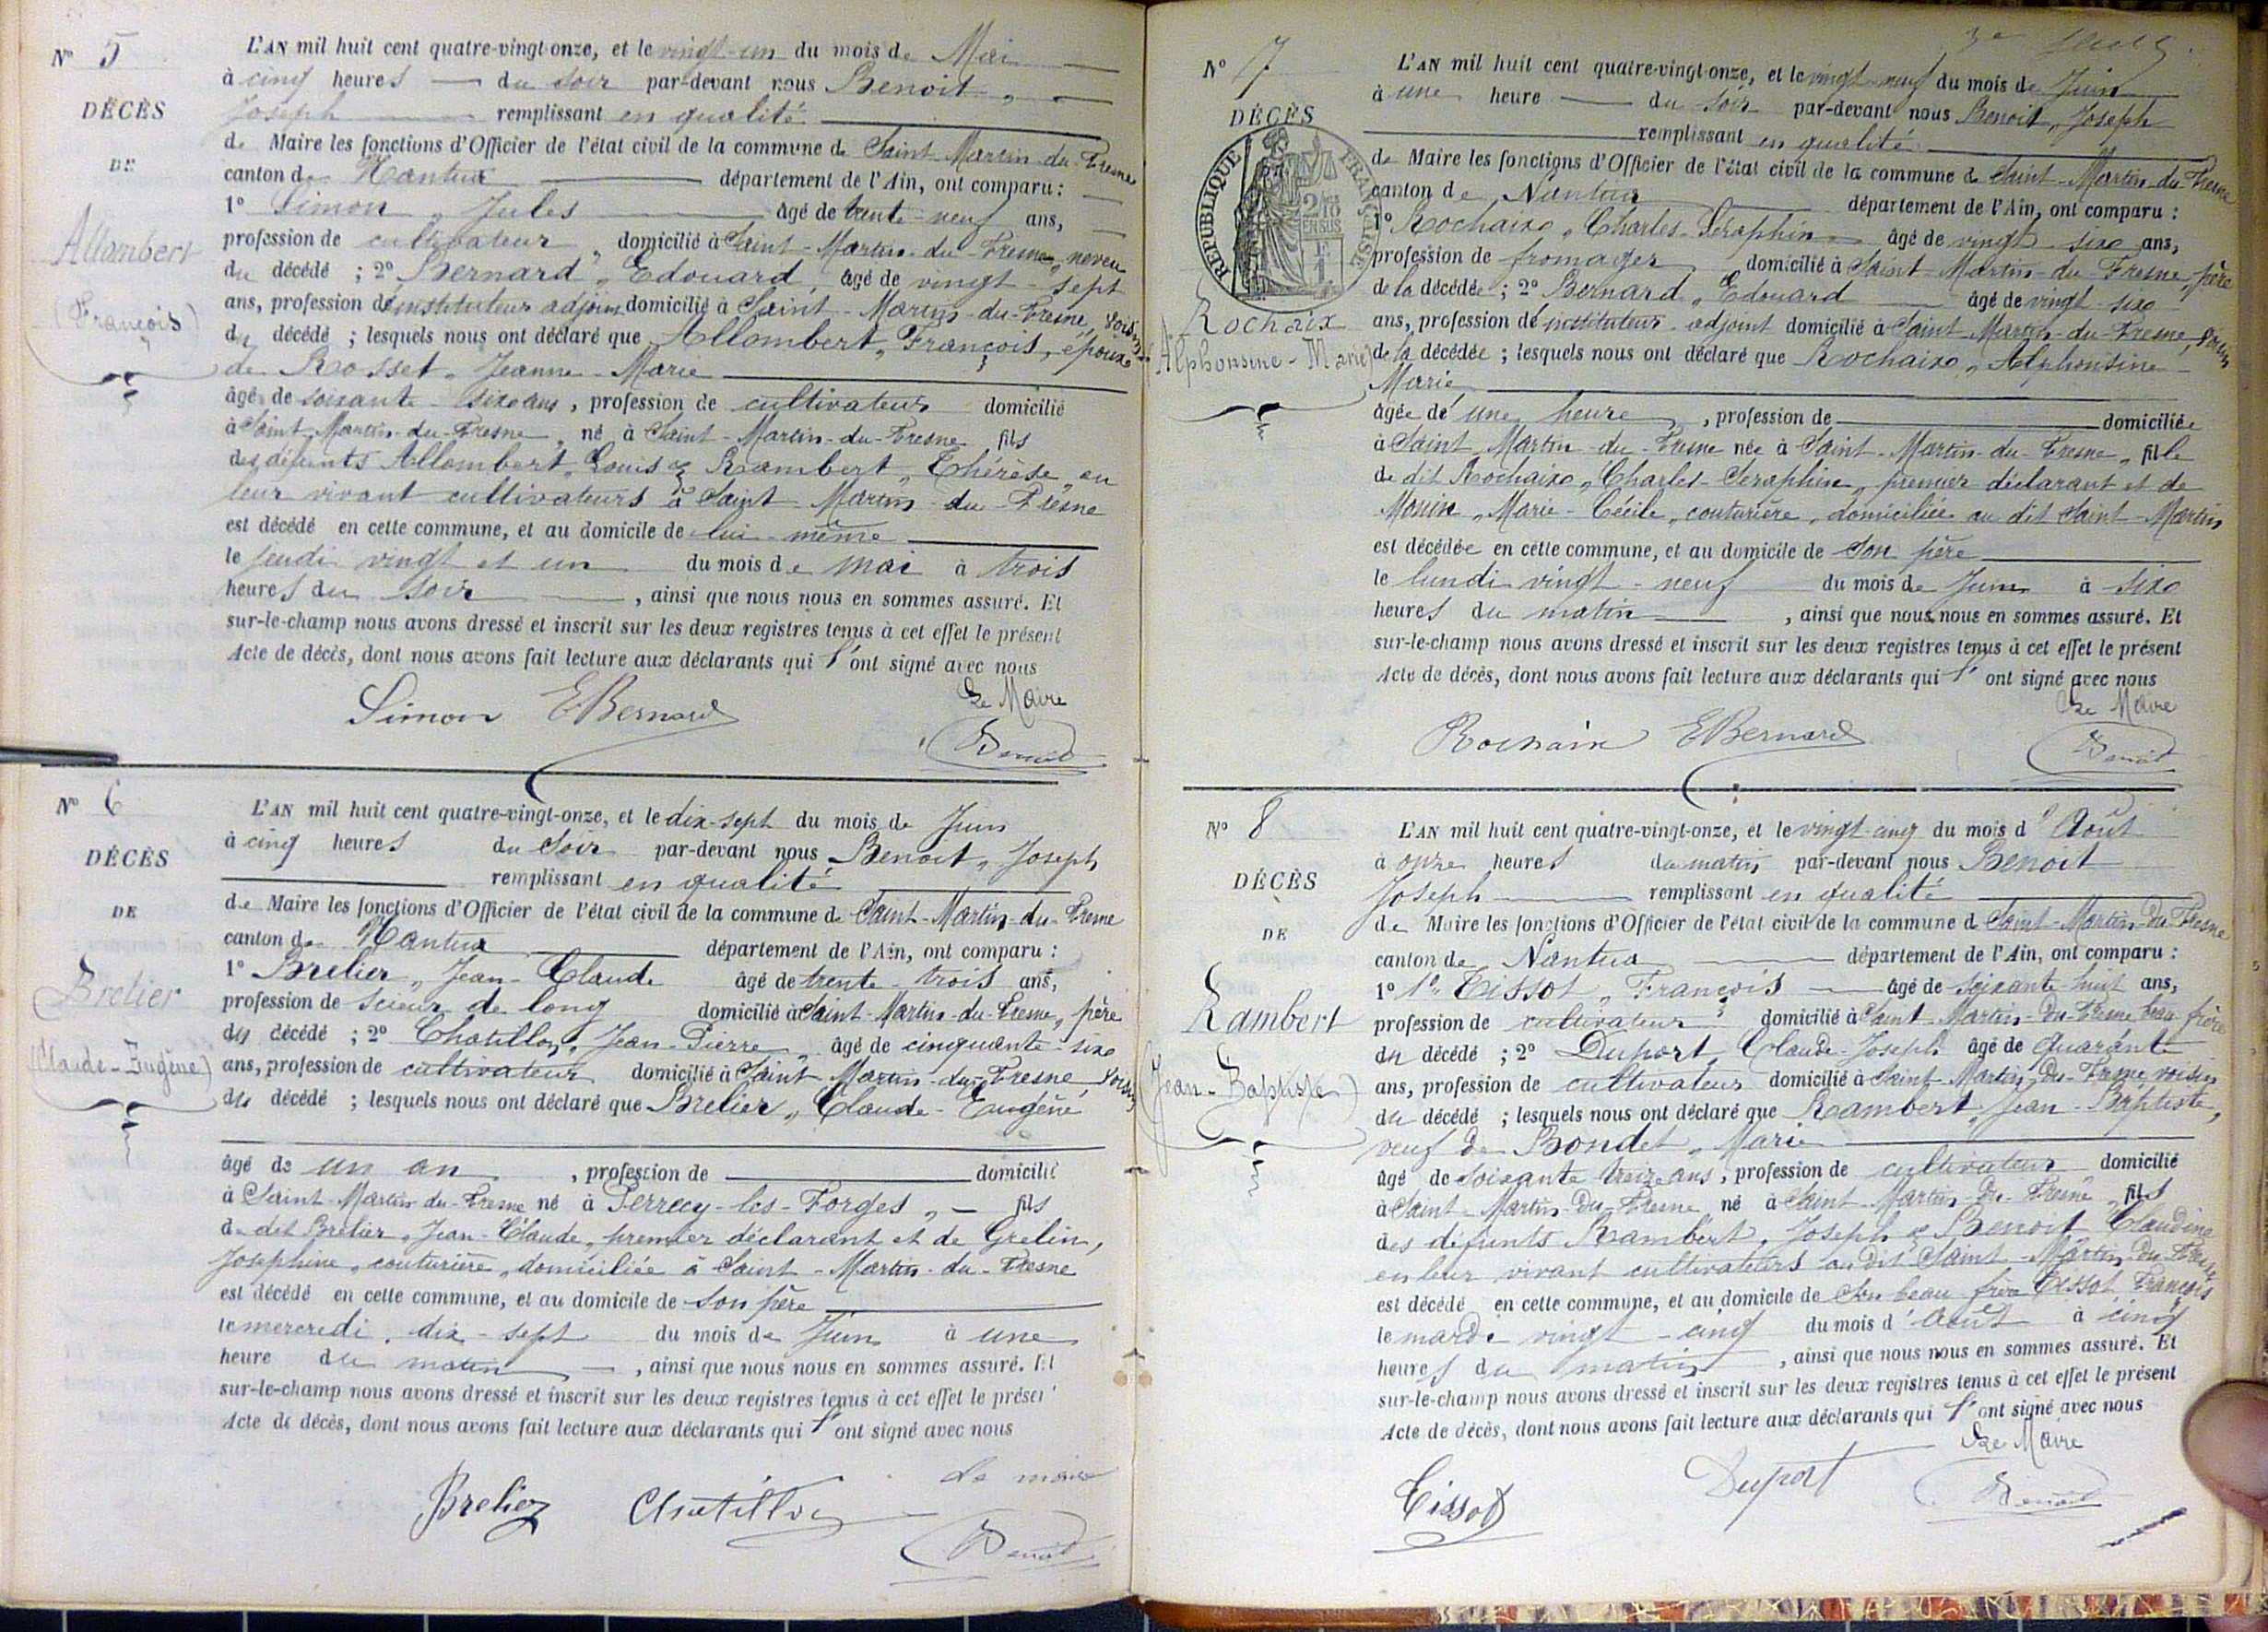 N° 5
DÉCÈS
DE
Allombert
(François)
L'AN mil huit cent quatre-vingt-onze, et le vingt-un du mois de Mai
à cinq heures du soir par-devant nous Benoit,
Joseph remplissant en qualité
de Maire les fonctions d'Officier de l'état civil de la commune de Saint-Martin-du-Fresne
canton de Nantua département de l'Ain, ont comparu :
1° Simon, Jules âgé de trente-neuf ans,
profession de cultivateur, domicilié à Saint-Martin-du-Fresne, neveu
du décédé ; 2° Bernard, Edouard, âgé de vingt-sept
ans, profession d'instituteur adjoint domicilié à Saint-Martin-du-Fresne, voisin
du décédé ; lesquels nous ont déclaré que Allombert, François, époux
de Rosset, Jeanne-Marie
âgé de soixante-six ans, profession de cultivateur domicilié
à Saint-Martin-du-Fresne, né à Saint-Martin-du-Fresne fils
des défunts Allombert, Louis & Rambert, Thérèse, en
leur vivant cultivateurs à Saint-Martin-du-Fresne
est décédé en cette commune, et au domicile de lui-même
le jeudi vingt et un du mois de mai à trois
heures du soir, ainsi que nous nous en sommes assuré. Et
sur-le-champ nous avons dressé et inscrit sur les deux registres tenus à cet effet le présent
Acte de décès, dont nous avons fait lecture aux déclarants qui l'ont signé avec nous
Le Maire
Simon EBernard
Benoit
N° 6
DÉCÈS
DE
Brelier
(Claude-Eugène)
L'AN mil huit cent quatre-vingt-onze, et le dix-sept du mois de Juin
à cinq heures du soir par-devant nous Benoit, Joseph
remplissant en qualité
de Maire les fonctions d'Officier de l'état civil de la commune de Saint-Martin-du-Fresne
canton de Nantua département de l'Ain, ont comparu :
1° Brelier, Jean-Claude âgé de trente-trois ans,
profession de scieur de long domicilié à Saint-Martin-du-Fresne, père
du décédé ; 2° Chatillon, Jean-Pierre, âgé de cinquante-six
ans, profession de cultivateur domicilié à Saint-Martin-du-Fresne, voisin
du décédé ; lesquels nous ont déclaré que Brelier, Claude-Eugène
âgé de un an, profession de domicilié
à Saint-Martin-du-Fresne né à Perrecy-les-Forges, fils
de dit Brelier, Jean-Claude, premier déclarant et de Grelin,
Joséphine, couturière, domiciliée à Saint-Martin-du-Fresne
est décédé en cette commune, et au domicile de son père
le mercredi, dix-sept du mois de Juin à une
heure du matin, ainsi que nous nous en sommes assuré. Et
sur-le-champ nous avons dressé et inscrit sur les deux registres tenus à cet effet le présent
Acte de décès, dont nous avons fait lecture aux déclarants qui l'ont signé avec nous
Le maire
Brelier Chatillon
Benoit
N° 7
DÉCÈS
RÉPUBLIQUE FRANÇAISE
2/10 EN SUS
Rochaix
(Alphonsine-Marie)
L'AN mil huit cent quatre-vingt-onze, et le vingt-neuf du mois de Juin
à une heure du soir par-devant nous Benoit, Joseph
remplissant en qualité
de Maire les fonctions d'Officier de l'état civil de la commune de Saint-Martin-du-Fresne
canton de Nantua département de l'Ain, ont comparu :
1° Rochaix, Charles-Séraphin âgé de vingt-six ans,
profession de fromager domicilié à Saint-Martin-du-Fresne, père
de la décédée ; 2° Bernard, Edouard âgé de vingt-six
ans, profession d'instituteur-adjoint domicilié à Saint-Martin-du-Fresne, voisin
de la décédée ; lesquels nous ont déclaré que Rochaix, Alphonsine-
Marie
âgée d'une heure, profession de domiciliée
à Saint-Martin-du-Fresne née à Saint-Martin-du-Fresne, fille
de dit Rochaix, Charles-Séraphin, premier déclarant et de
Marie-Cécile, couturière, domiciliée au dit Saint-Martin
est décédée en cette commune, et au domicile de son père
le lundi vingt-neuf du mois de Juin à six
heures du matin, ainsi que nous nous en sommes assuré. Et
sur-le-champ nous avons dressé et inscrit sur les deux registres tenus à cet effet le présent
Acte de décès, dont nous avons fait lecture aux déclarants qui l'ont signé avec nous
Le Maire
Rochaix EBernard
Benoit
N° 8
DÉCÈS
DE
Rambert
(Jean-Baptiste)
L'AN mil huit cent quatre-vingt-onze, et le vingt-cinq du mois d'Août
à onze heures du matin par-devant nous Benoit
Joseph remplissant en qualité
de Maire les fonctions d'Officier de l'état civil de la commune d Saint-Martin-du-Fresne
canton de Nantua département de l'Ain, ont comparu :
1° 1° Tissot, François âgé de soixante-huit ans,
profession de cultivateur domicilié à Saint-Martin-du-Fresne beau-frère
du décédé ; 2° Duport, Claude-Joseph âgé de quarante
ans, profession de cultivateur domicilié à Saint-Martin-du-Fresne voisin
du décédé ; lesquels nous ont déclaré que Rambert, Jean-Baptiste,
veuf de Bondet, Marie
âgé de soixante treize ans, profession de cultivateur domicilié
à Saint-Martin-du-Fresne né à Saint-Martin-du-Fresne, fils
des défunts Rambert, Joseph & Benoit Claudine
en leur vivant cultivateurs audit Saint-Martin-du-Fresne
est décédé en cette commune, et au domicile de son beau frère Tissot, François
le mardi vingt-cinq du mois d'Août à cinq
heures du matin, ainsi que nous nous en sommes assuré. Et
sur-le-champ nous avons dressé et inscrit sur les deux registres tenus à cet effet le présent
Acte de décès, dont nous avons fait lecture aux déclarants qui l'ont signé avec nous
Le Maire
Tissot Duport
Benoit